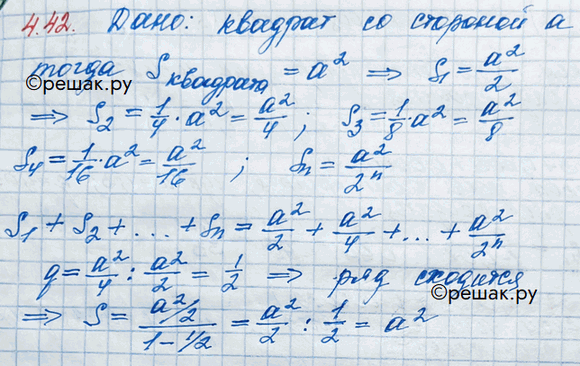 4.42. Дано: квадрат со стороной a
тогда S квадрата = a² ⟹ S₁ = a²/2
©решак.ру
⟹ S₂ = 1/4 · a² = a²/4 ; S₃ = 1/8 · a² = a²/8
S₄ = 1/16 · a² = a²/16 ; Sn = a²/2ⁿ
S₁ + S₂ + ... + Sn = a²/2 + a²/4 + ... + a²/2ⁿ
q = a²/4 : a²/2 = 1/2 ⟹ ряд сходится
©решак.ру
⟹ S = (a²/2)/(1 - 1/2) = a²/2 : 1/2 = a²